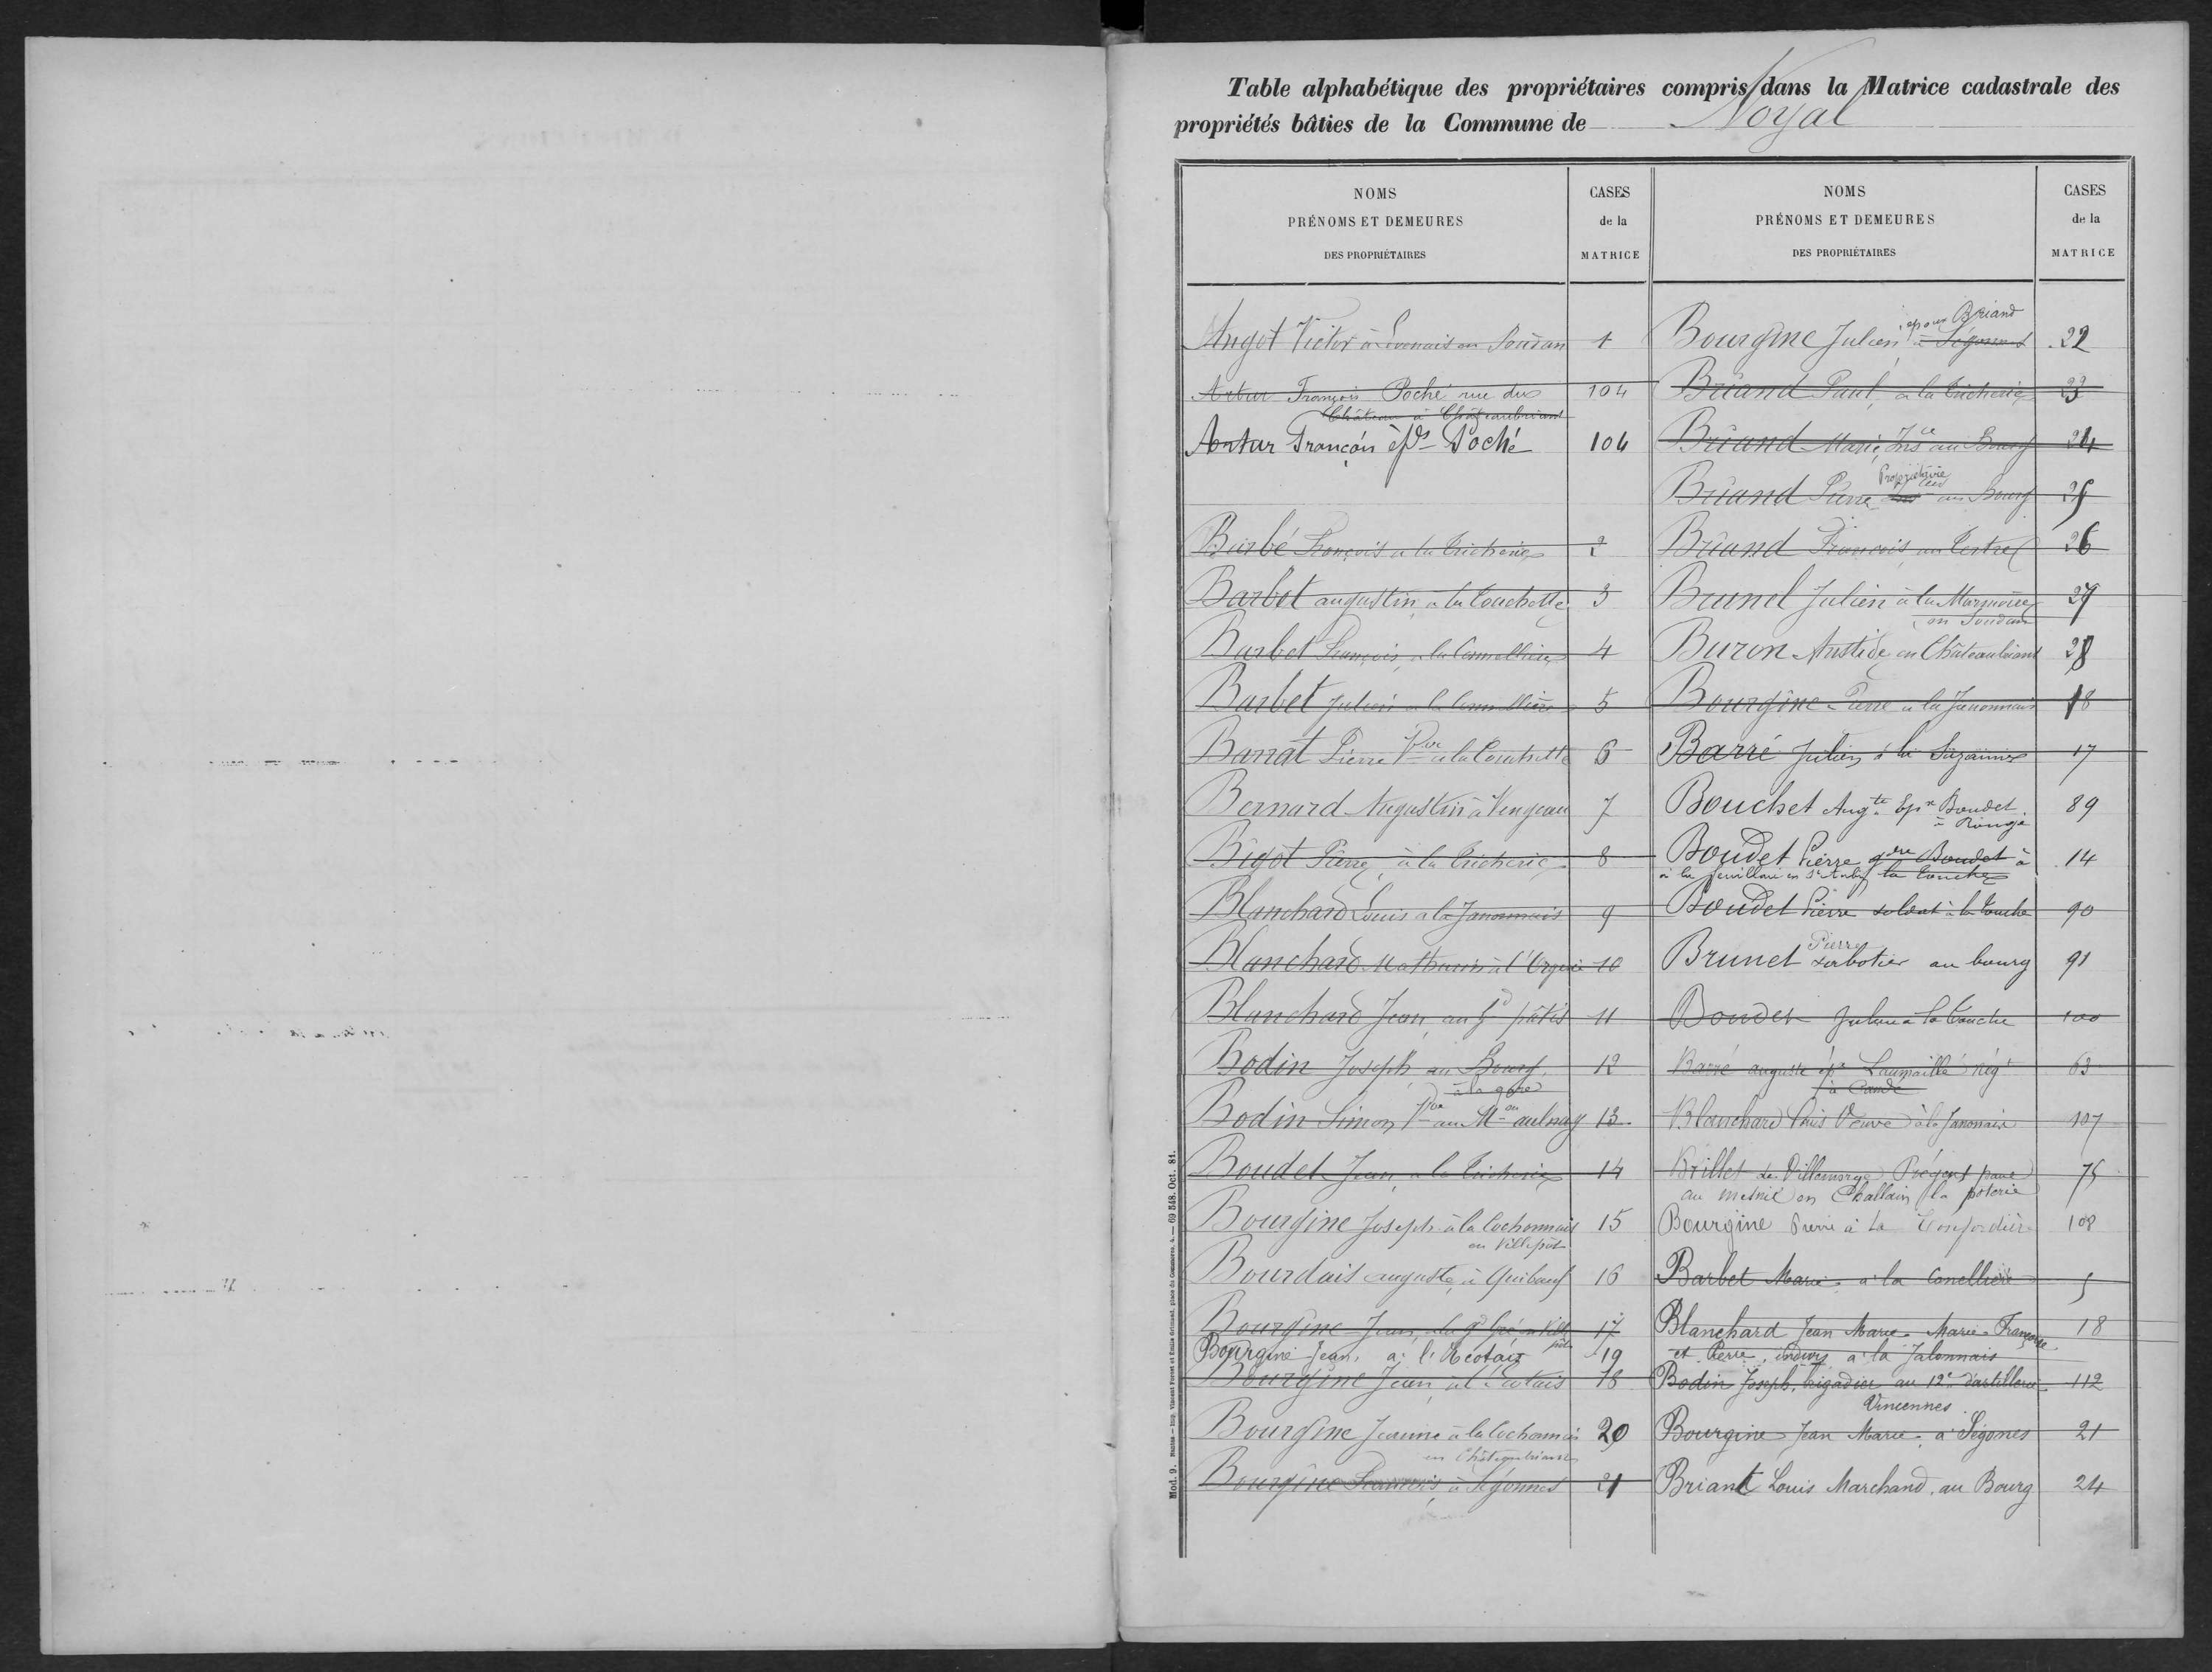 Table alphabétique des propriétaires compris dans la Matrice cadastrale des
propriétés bâties de la Commune de Noyal
NOMS
PRÉNOMS ET DEMEURES
DES PROPRIÉTAIRES
CASES
de la
MATRICE
Angot Victor à en Soudan 1
Artur François Poché rue du 104
Château à Châteaubriant
Artur François Poché 104
Barbé François à la Tricherie 2
Barbot augustin à la Touchette 3
Barbot François à la 4
Barbet Julien à la 5
Barrat Pierre Vve à la Touchette 6
Bernard Augustin à Vengeau 7
Bigot Pierre à la Tricherie 8
Blanchard Louis à la Janonnais 9
Blanchard Mathurin à 10
Blanchard Jean au gd pâtis 11
Bodin Joseph au Bourg 12
à la gare
Bodin Simon Vve au aulnay 13
Boudet Jean à la Tricherie 14
Bourgine Joseph à la Cochonnais 15
en Villepôt
Bourdais auguste à Quibeuf 16
Bourgine Jean 17
Bourgine Jean, à l'Ecotais 19
Bourgine Jean à l'Ecotais 18
Bourgine Jeanne à la Cochonnais 20
en Châteaubriant
Bourgine François à Ségonnes 21
NOMS
PRÉNOMS ET DEMEURES
DES PROPRIÉTAIRES
CASES
de la
MATRICE
époux Briand
Bourgine Julien à Ségonnes 22
Briand Paul à la Tricherie 23
Briand Marie au Bourg 24
Propriétaire
Briand Pierre au Bourg 25
Briand François au Tertre 26
Brunel Julien à la 27
en Soudan
Buron Aristide en Châteaubriant 28
Bourgine Pierre à la Janonnais 18
Barré Julien à la 17
Bouchet Augte Epx Boudet 89
à Rougé
Boudet Pierre gdre Boudet à 14
à la en St Aubin la Touche
Boudet Pierre soldat à la Touche 90
Pierre
Brunet sabotier au bourg 91
Boudet à la Touche 100
Barré auguste épx Laumaillé négt 63
à Candé
Blanchard Louis Veuve à la Janonnais 107
Brillet de Villemorge Prégent 75
au mesnil en Challain la poterie
Bourgine Pierre à la 108
Barbet Marie à la Canellière 5
Blanchard Jean Marie - Marie-Françoise 18
et Pierre, indivis à la Jalonnais
Bodin Joseph, brigadier au 12e d'artillerie 112
Vincennes
Bourgine Jean Marie, à Ségonnes 21
Briant Louis Marchand, au Bourg 24
Mod. 9.